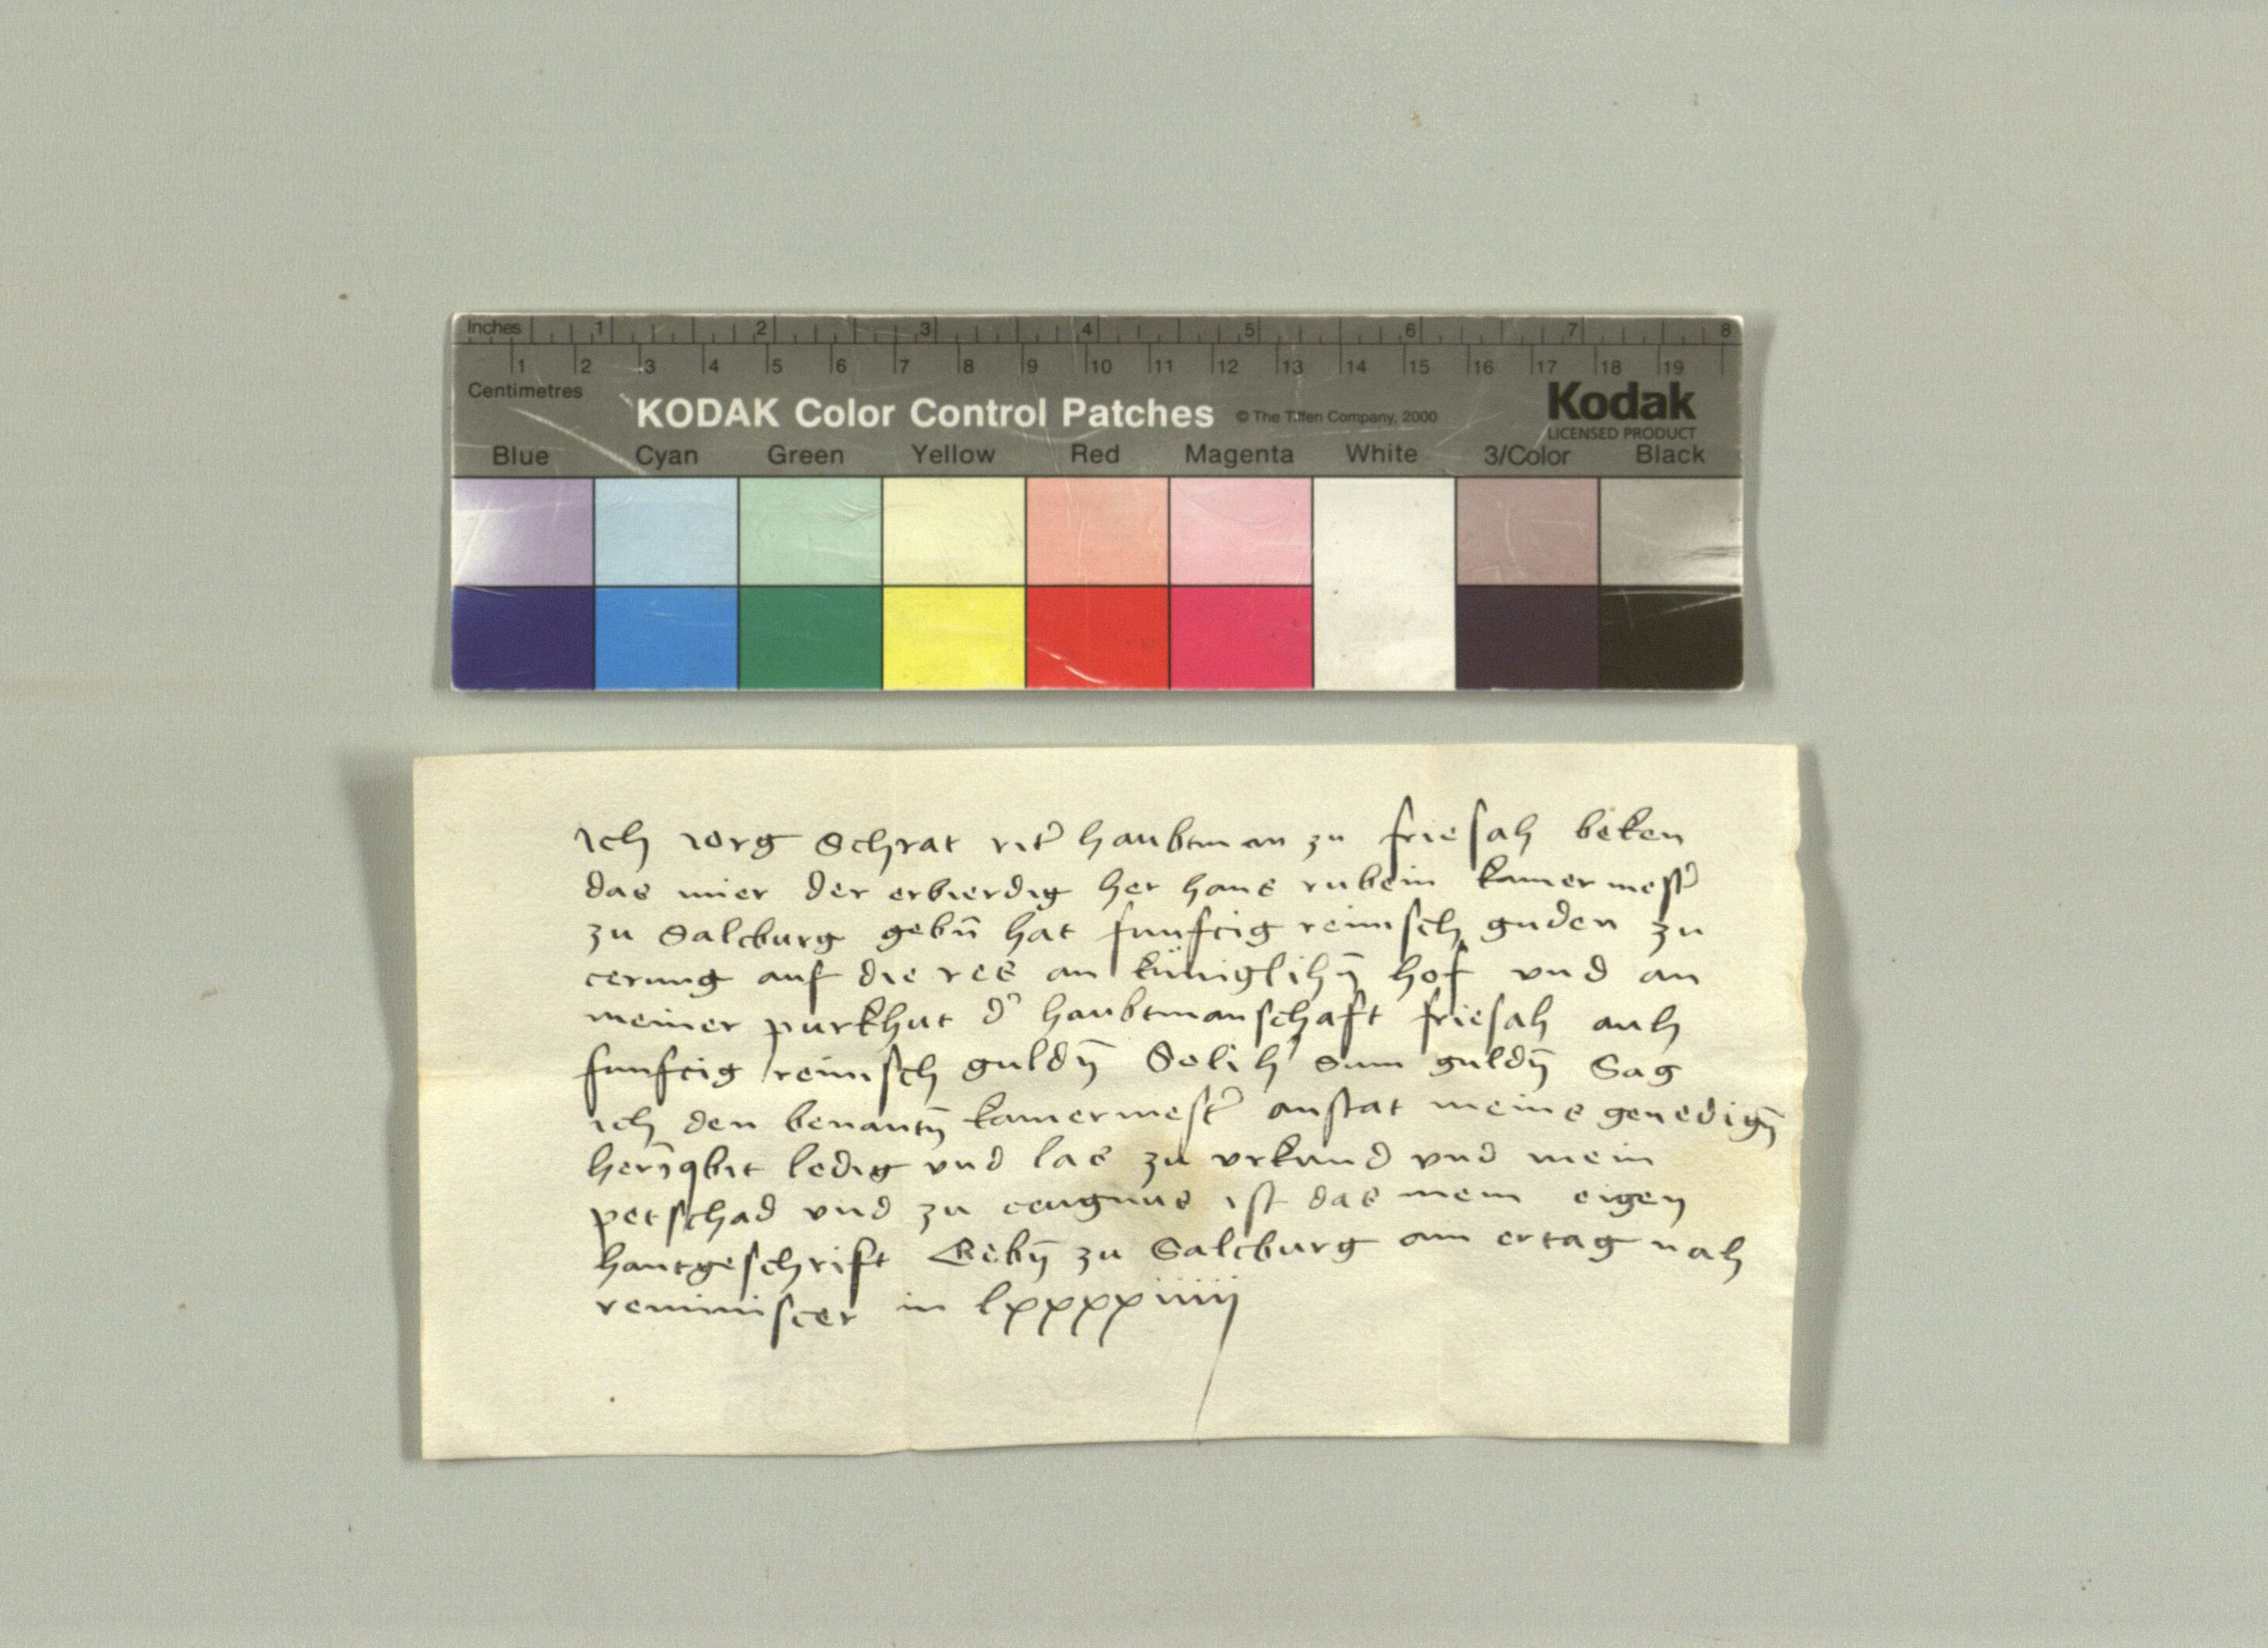 Inches 1 2 3 4 5 6 7 8
1 2 3 4 5 6 7 8 9 10 11 12 13 14 15 16 17 18 19
Centimetres
KODAK Color Control Patches © The Tiffen Company, 2000 Kodak
LICENSED PRODUCT
Blue Cyan Green Yellow Red Magenta White 3/Color Black
ich iorg Schrat rit' haubtman zu friesah beken
das mier der erbierdig her hans rubein kamermest'
zu Salczburg gebn̄ hat funfcig reinisch guden zu
cerung auf die res an küniglihn̄ hof vnd an
meiner purkhut d' haubtmanschaft friesah auh
funfcig reinisch guldn̄ Solih' Sum guldn̄ Sag
ich den benantn̄ kamermest' anstat meins genedign̄
hern̄ qbit ledig vnd las zu vrkund vnd mein
petschad vnd zu ceugnus ist das mein eigen
hantgeschrift Gebn̄ zu Salcburg am ertag nah
reminiscer in lxxxxiiiij